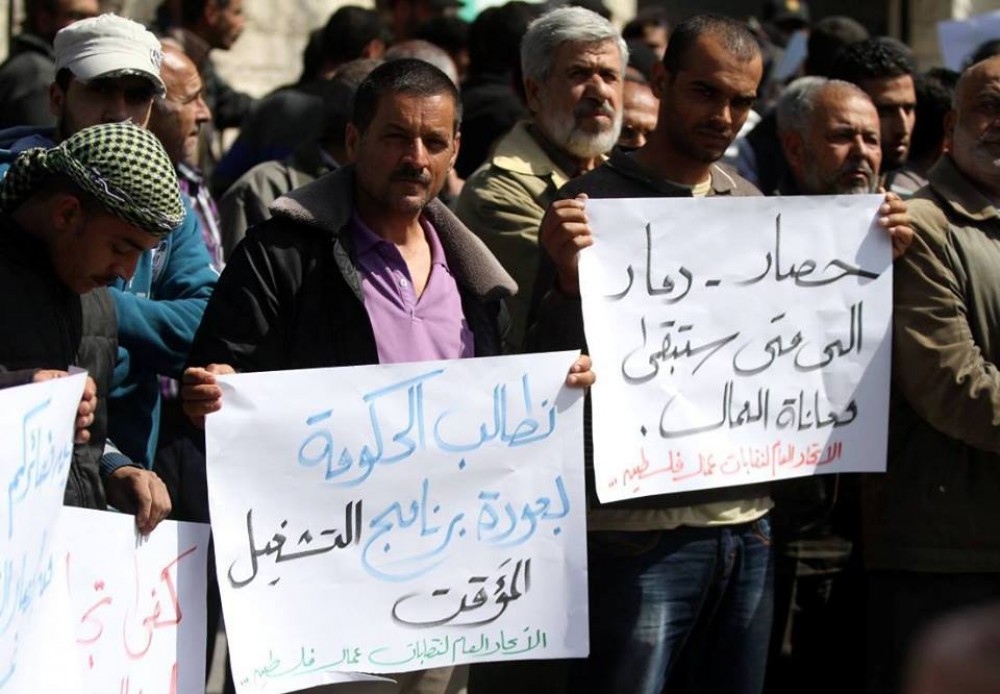 حصار - دمار
الى متى ستبقى
معاناة العمال .
الاتحاد العام لنقابات عمال فلسطين ..
نطالب الحكومة
بعودة برنامج التشغيل
المؤقت
الاتحاد العام لنقابات عمال فلسطين
كفى